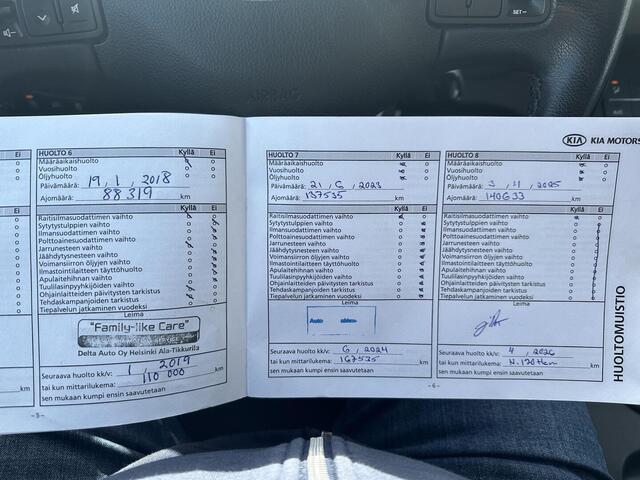 SET-
Ei
HUOLTO 6 Kyllä Ei
Määräaikaishuolto
Vuosihuolto
Öljyhuolto
Päivämäärä: 19, 1, 2018
Ajomäärä: 88319 km
Raitisilmasuodattimen vaihto
Sytytystulppien vaihto
Ilmansuodattimen vaihto
Polttoainesuodattimen vaihto
Jarrunesteen vaihto
Jäähdytysnesteen vaihto
Voimansiirron öljyjen vaihto
Ilmastointilaitteen täyttöhuolto
Apulaitehihnan vaihto
Tuulilasinpyyhkijöiden vaihto
Ohjainlaitteiden päivitysten tarkistus
Tehdaskampanjoiden tarkistus
Tiepalvelun jatkaminen vuodeksi
Leima
"Family-like Care"
Delta Auto Oy Helsinki Ala-Tikkurila
Seuraava huolto kk/v: 1, 2019
tai kun mittarilukema: 110 000 km
sen mukaan kumpi ensin saavutetaan
-5-
km
KIA KIA MOTORS
HUOLTO 7 Kyllä Ei
Määräaikaishuolto
Vuosihuolto
Öljyhuolto
Päivämäärä: 21, 6, 2023
Ajomäärä: 137535 km
Raitisilmasuodattimen vaihto
Sytytystulppien vaihto
Ilmansuodattimen vaihto
Polttoainesuodattimen vaihto
Jarrunesteen vaihto
Jäähdytysnesteen vaihto
Voimansiirron öljyjen vaihto
Ilmastointilaitteen täyttöhuolto
Apulaitehihnan vaihto
Tuulilasinpyyhkijöiden vaihto
Ohjainlaitteiden päivitysten tarkistus
Tehdaskampanjoiden tarkistus
Tiepalvelun jatkaminen vuodeksi
Leima
Auto
Seuraava huolto kk/v: 6, 2024
tai kun mittarilukema: 167535 km
sen mukaan kumpi ensin saavutetaan
-6-
HUOLTO 8 Kyllä Ei
Määräaikaishuolto
Vuosihuolto
Öljyhuolto
Päivämäärä: 3, 4, 2025
Ajomäärä: 140633 km
Raitisilmasuodattimen vaihto
Sytytystulppien vaihto
Ilmansuodattimen vaihto
Polttoainesuodattimen vaihto
Jarrunesteen vaihto
Jäähdytysnesteen vaihto
Voimansiirron öljyjen vaihto
Ilmastointilaitteen täyttöhuolto
Apulaitehihnan vaihto
Tuulilasinpyyhkijöiden vaihto
Ohjainlaitteiden päivitysten tarkistus
Tehdaskampanjoiden tarkistus
Tiepalvelun jatkaminen vuodeksi
Leima
Seuraava huolto kk/v: 4, 2026
tai kun mittarilukema: km
sen mukaan kumpi ensin saavutetaan
HUOLTOMUISTIO